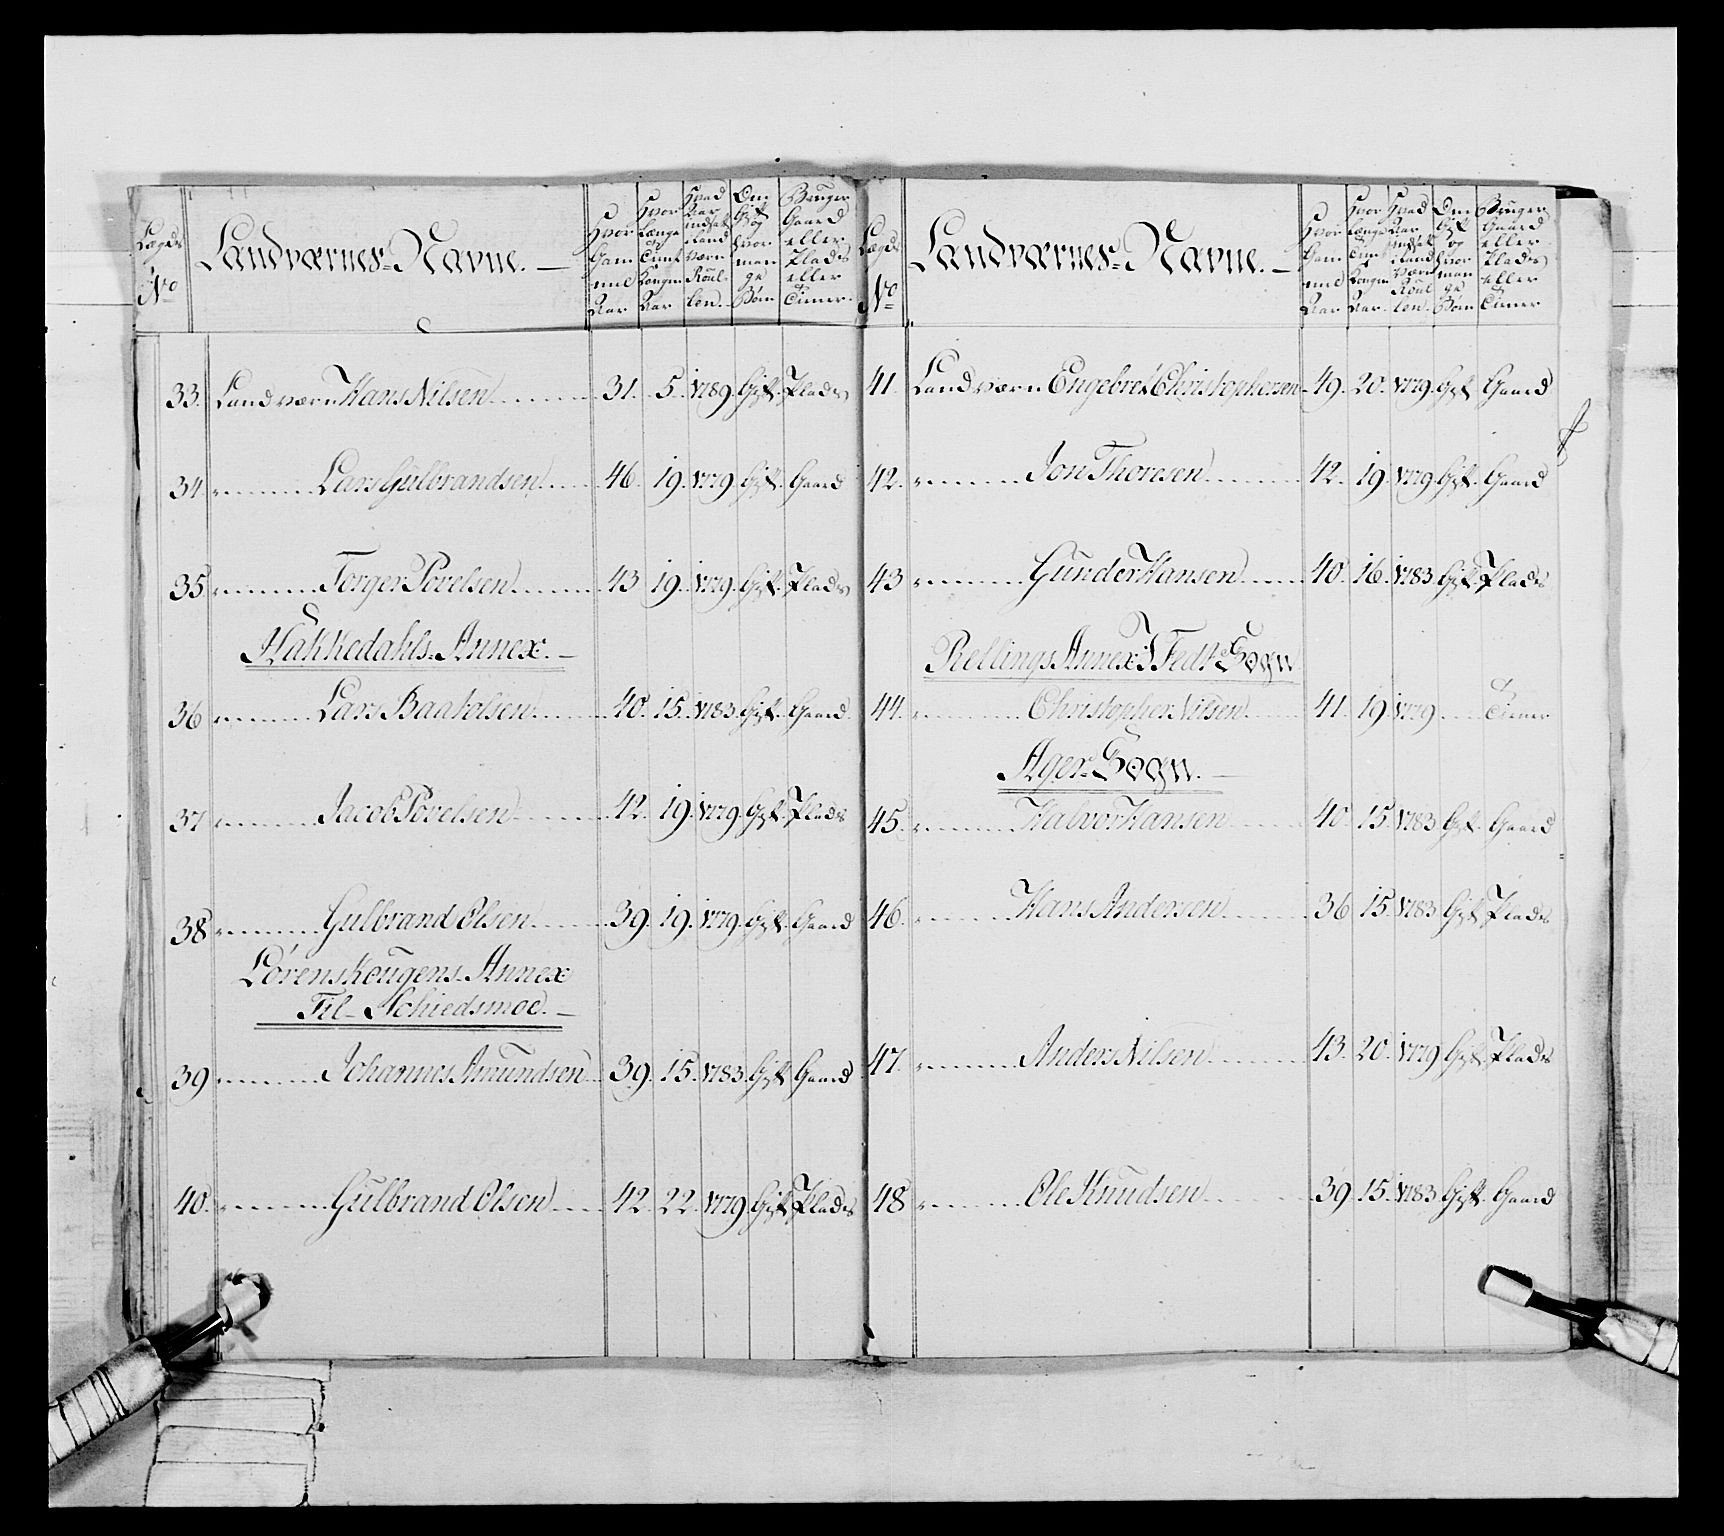 Lægds No
Landværnes=Navne. —
Hvor Gammel Aar
Hvor Længe og Tient Kongen Aar
Hvad Aar indsat i Land værn Roullen.
Om Gift og hvor mange Børn
Bruger Gaard eller Plads eller Tiener.
33. Landværn Hans Nilsen 31. 5. 1789. Gift. Plads
34. Lars Gulbrandsen 46. 19. 1779. Gift. Gaard
35 Torger Povelsen 43 19. 1779. Gift. Plads
Hakkedahls=Annex. —
36 Lars Baarolsen 40. 15. 1783. Gift. Gaard.
37 Jacob Povelsen 42. 19. 1779. Gift. Plads
38 Gulbrand Olsen 39. 19. 1779. Gift. Gaard
Lørenskougens=Annex
Til Schiedsmoe. —
39 Johannes Amundsen 39. 15. 1783. Gift Gaard
40. Gulbrand Olsen 42. 22. 1779. Gift Plads
Lægds No
Landværnes=Navne. —
Hvor Gammel Aar
Hvor Længe og Tient Kongen Aar.
Hvad Aar indsat i Land Værn Roullen.
Om Gift og hvor mange Børn
Bruger Gaard eller Plads eller Tiener
41. Landværn Engebret Christophersen 49. 20. 1779. Gift Gaard
42. Jon Thoresen 42. 19. 1779. Gift. Gaard
43 Gunder Hansen 40. 16. 1783. Gift. Plads
Rellings Annex i Fedt Sogn
44. Christopher Nilsen 41. 19. 1779. Tiener
Ager=Sogn. —
45. Halvor Hansen 40. 15. 1783 Gift. Gaard
46. Hans Andersen 36 15. 1783 Gift Plads
47. Anders Nilsen 43. 20. 1779 Gift. Plads
48 Ole Knudsen 39. 15. 1783. Gift. Gaard